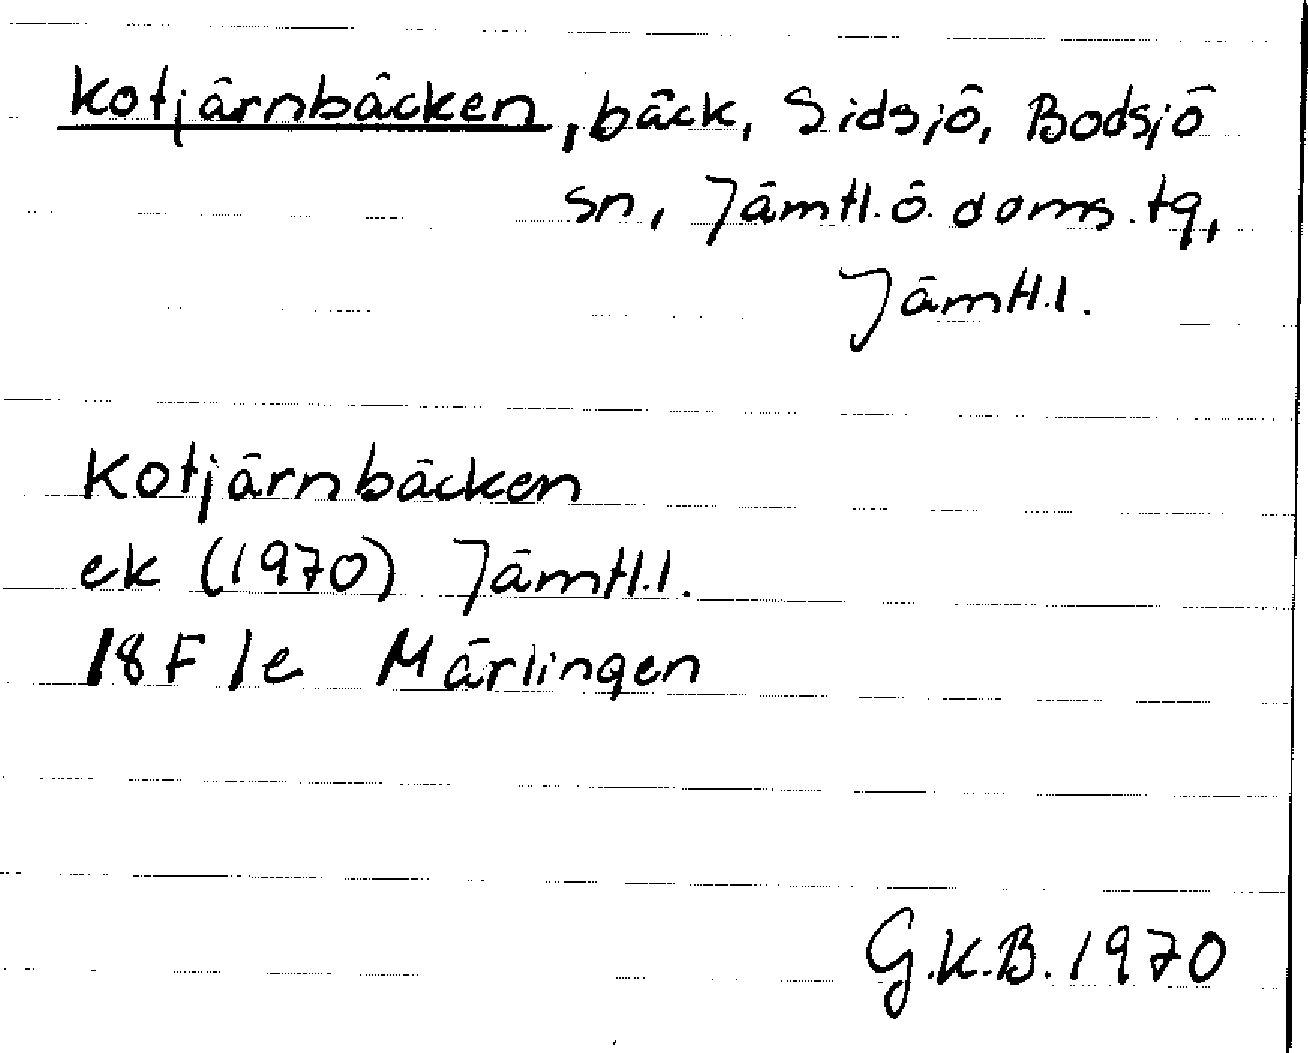 Kotjärnbäcken, bäck, Sidsjö, Bodsjö
sn, Jämtl.ö.doms.tg,
Jämtl.l.
Kotjärnbäcken
ek (1970) Jämtl.l.
18F 1e Märlingen
G.K.B. 1970